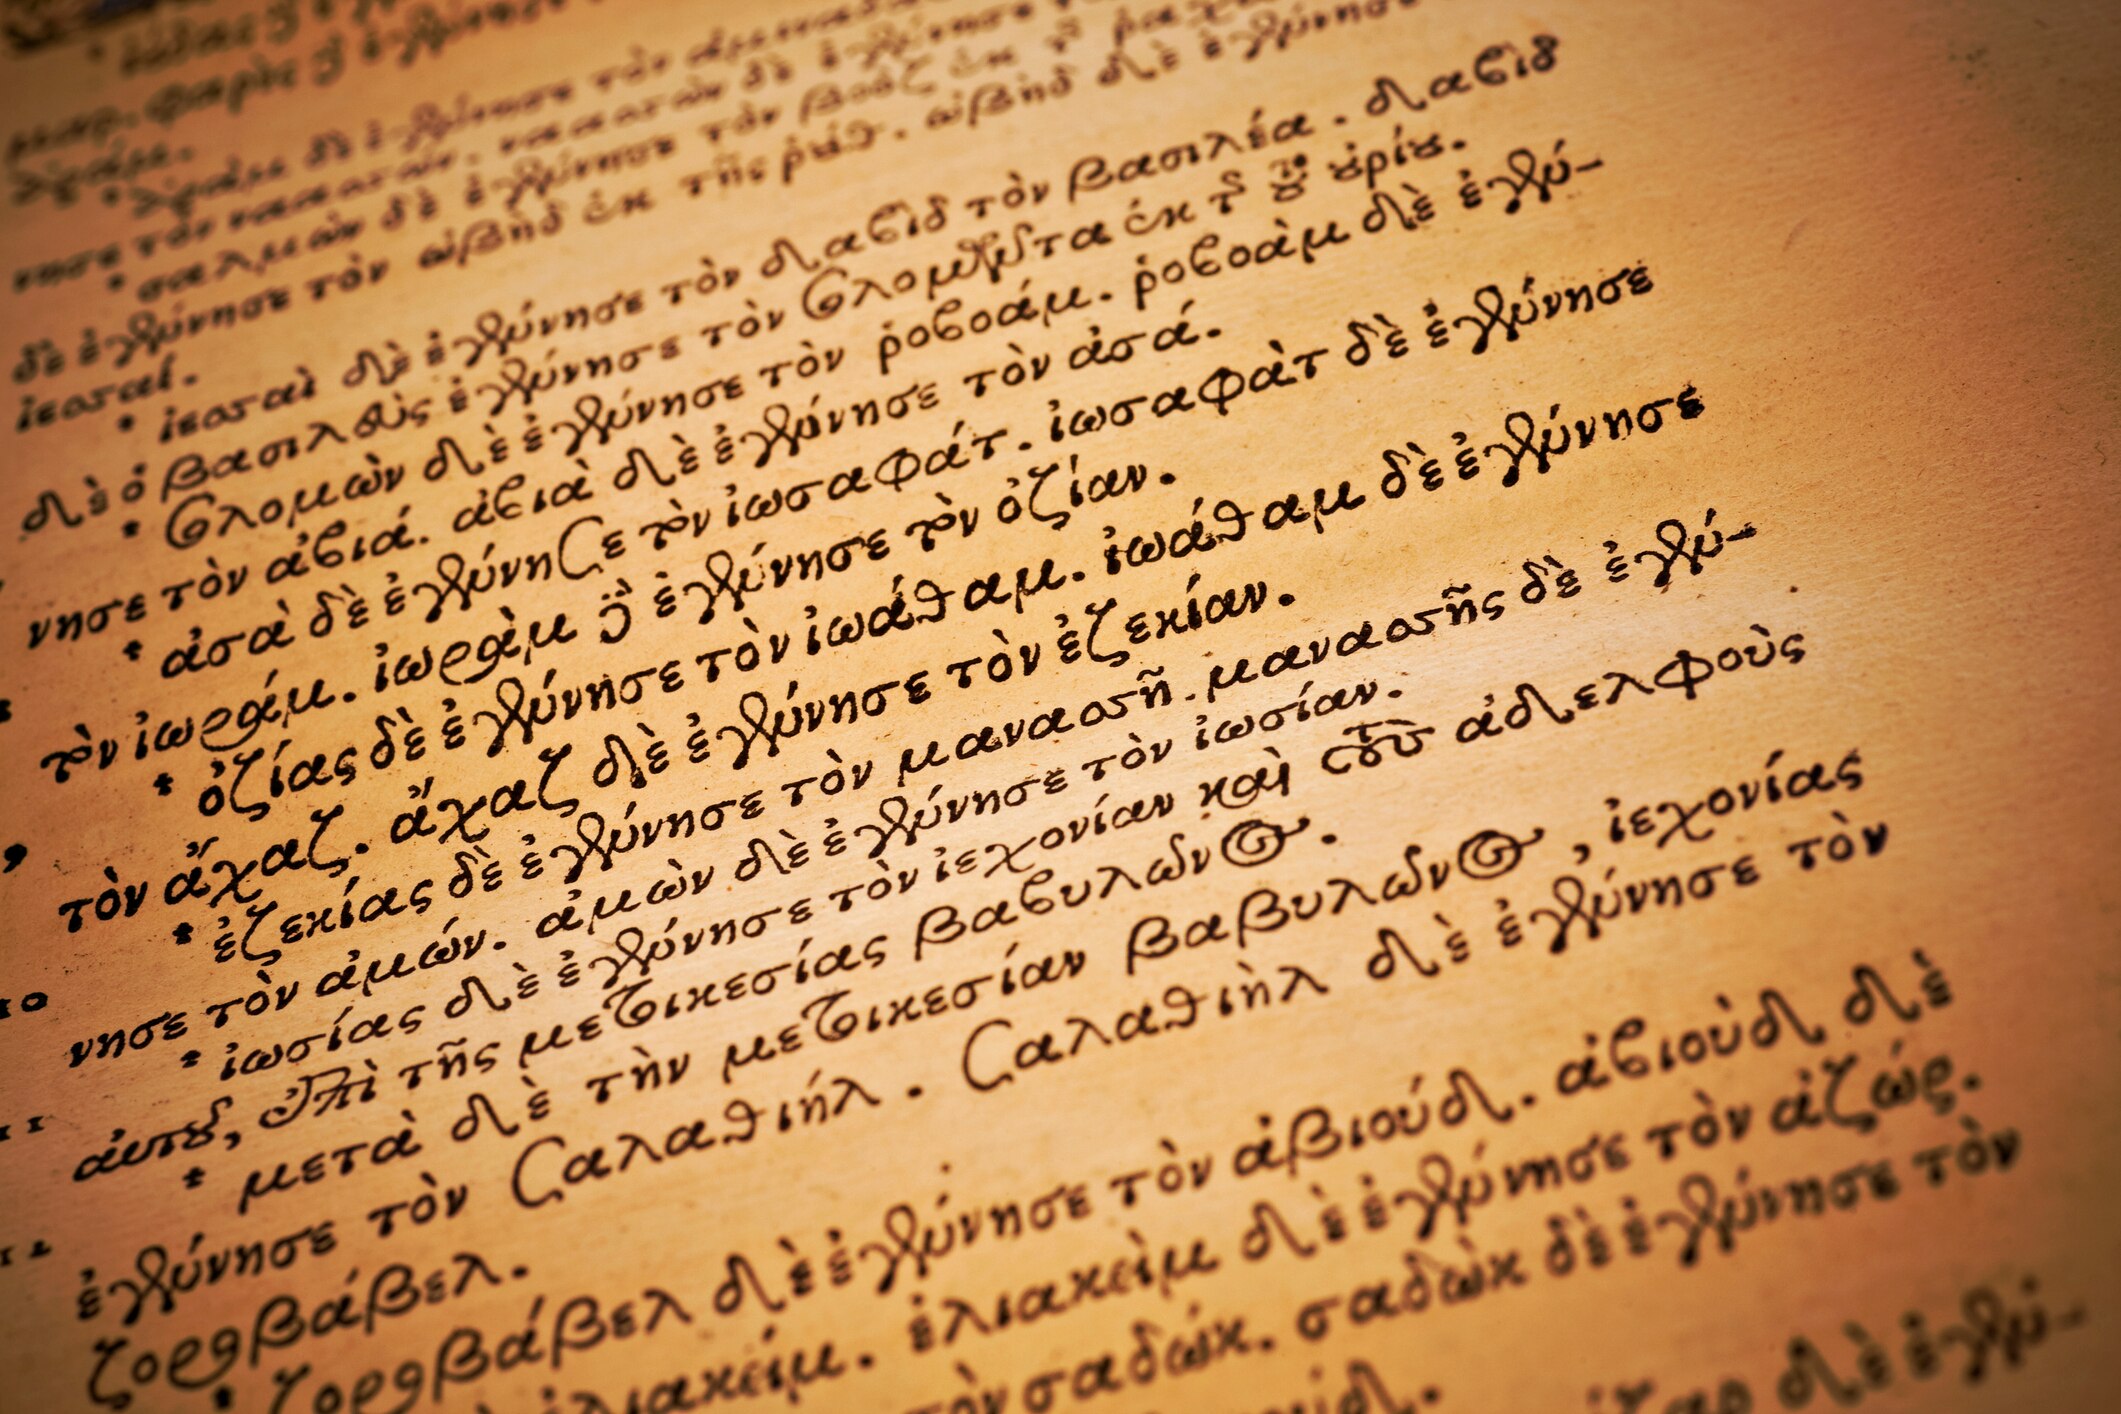 δὲ ἐγέννησε τὸν ὠβὴδ ἐκ τῆς ῥούθ. ὠβὴδ δὲ ἐγέννησε τὸν
ἰεσσαί.
ἰεσσαὶ δὲ ἐγέννησε τὸν δαβὶδ τὸν βασιλέα. δαβὶδ
δὲ ὁ βασιλεὺς ἐγέννησε τὸν σολομῶντα ἐκ τῆς τοῦ οὐρίου.
σολομὼν δὲ ἐγέννησε τὸν ῥοβοάμ. ῥοβοὰμ δὲ ἐγέν-
νησε τὸν ἀβιά. ἀβιὰ δὲ ἐγέννησε τὸν ἀσά.
ἀσὰ δὲ ἐγέννησε τὸν ἰωσαφάτ. ἰωσαφὰτ δὲ ἐγέννησε
τὸν ἰωράμ. ἰωρὰμ δὲ ἐγέννησε τὸν ὀζίαν.
ὀζίας δὲ ἐγέννησε τὸν ἰωάθαμ. ἰωάθαμ δὲ ἐγέννησε
τὸν ἄχαζ. ἄχαζ δὲ ἐγέννησε τὸν ἐζεκίαν.
ἐζεκίας δὲ ἐγέννησε τὸν μανασσῆ. μανασσῆς δὲ ἐγέν-
νησε τὸν ἀμών. ἀμὼν δὲ ἐγέννησε τὸν ἰωσίαν.
10 ἰωσίας δὲ ἐγέννησε τὸν ἰεχονίαν καὶ τοὺς ἀδελφοὺς
αὐτοῦ, ἐπὶ τῆς μετοικεσίας βαβυλῶνος.
11 μετὰ δὲ τὴν μετοικεσίαν βαβυλῶνος, ἰεχονίας
ἐγέννησε τὸν σαλαθιήλ. σαλαθιὴλ δὲ ἐγέννησε τὸν
12 ζορβάβελ.
ζορβάβελ δὲ ἐγέννησε τὸν ἀβιούδ. ἀβιοὺδ δὲ
ἐλιακείμ. ἐλιακεὶμ δὲ ἐγέννησε τὸν ἀζώρ.
τὸν σαδώκ. σαδὼκ δὲ ἐγέννησε τὸν
δὲ ἐγέν-